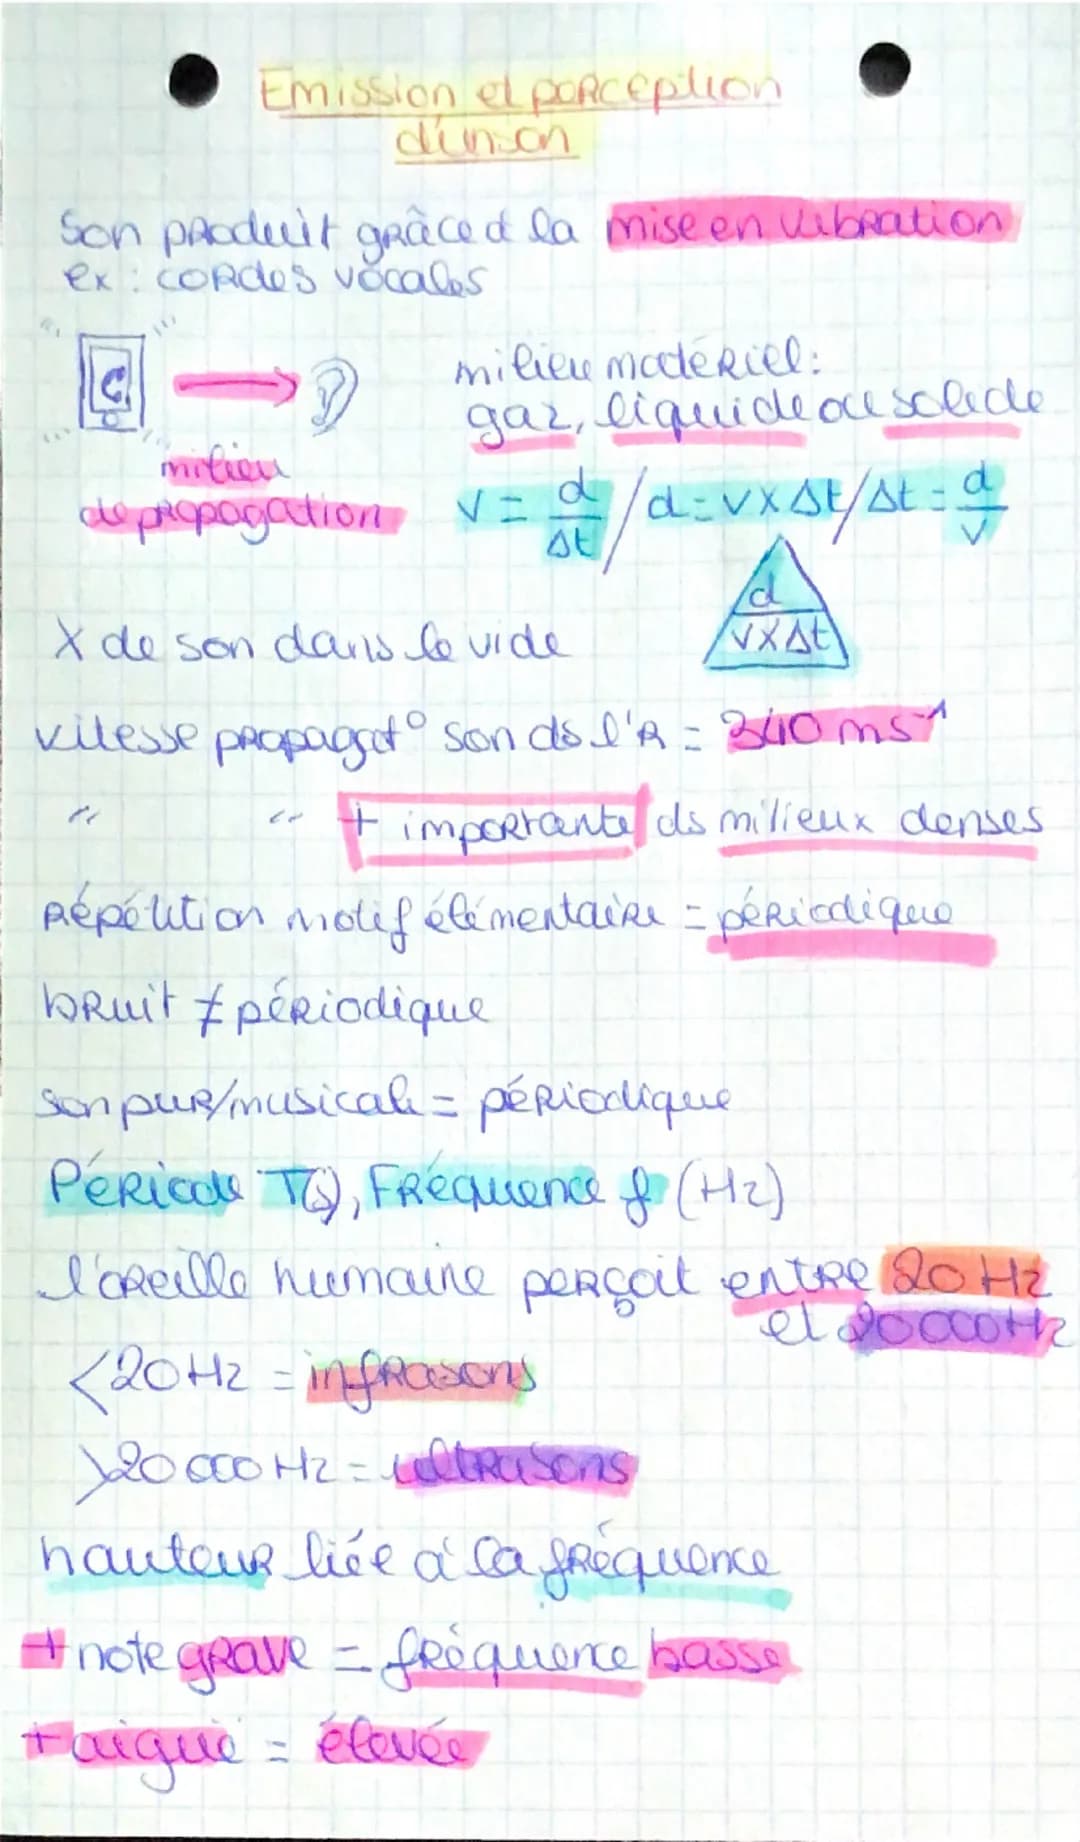 Emission et perception
d'un son
Son produit grâce à la mise en vibration
ex : cordes vocales
milieu matériel :
gaz, liquide ou solide
milieu
de propagation
v = d/Δt / d = v x Δt / Δt = d/v
d
v x Δt
X de son dans le vide
vitesse propagat° son ds l'R = 340 ms-1
" " + importante ds milieux denses
Répétition motif élémentaire = périodique
bruit ≠ périodique
son pur/musicale = périodique
Période T(s), Fréquence f (Hz)
l'oreille humaine perçoit entre 20 Hz
et 20 000 Hz
<20 Hz = infrasons
>20 000 Hz = ultrasons
hauteur liée à la fréquence
+ note grave = fréquence basse
+ aiguë = élevée